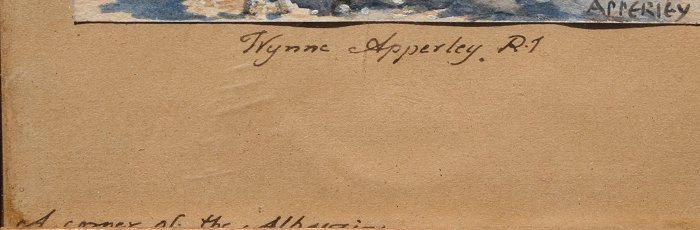 APPERLEY
Wynne Apperley. R.I
A corner of the Albaicin